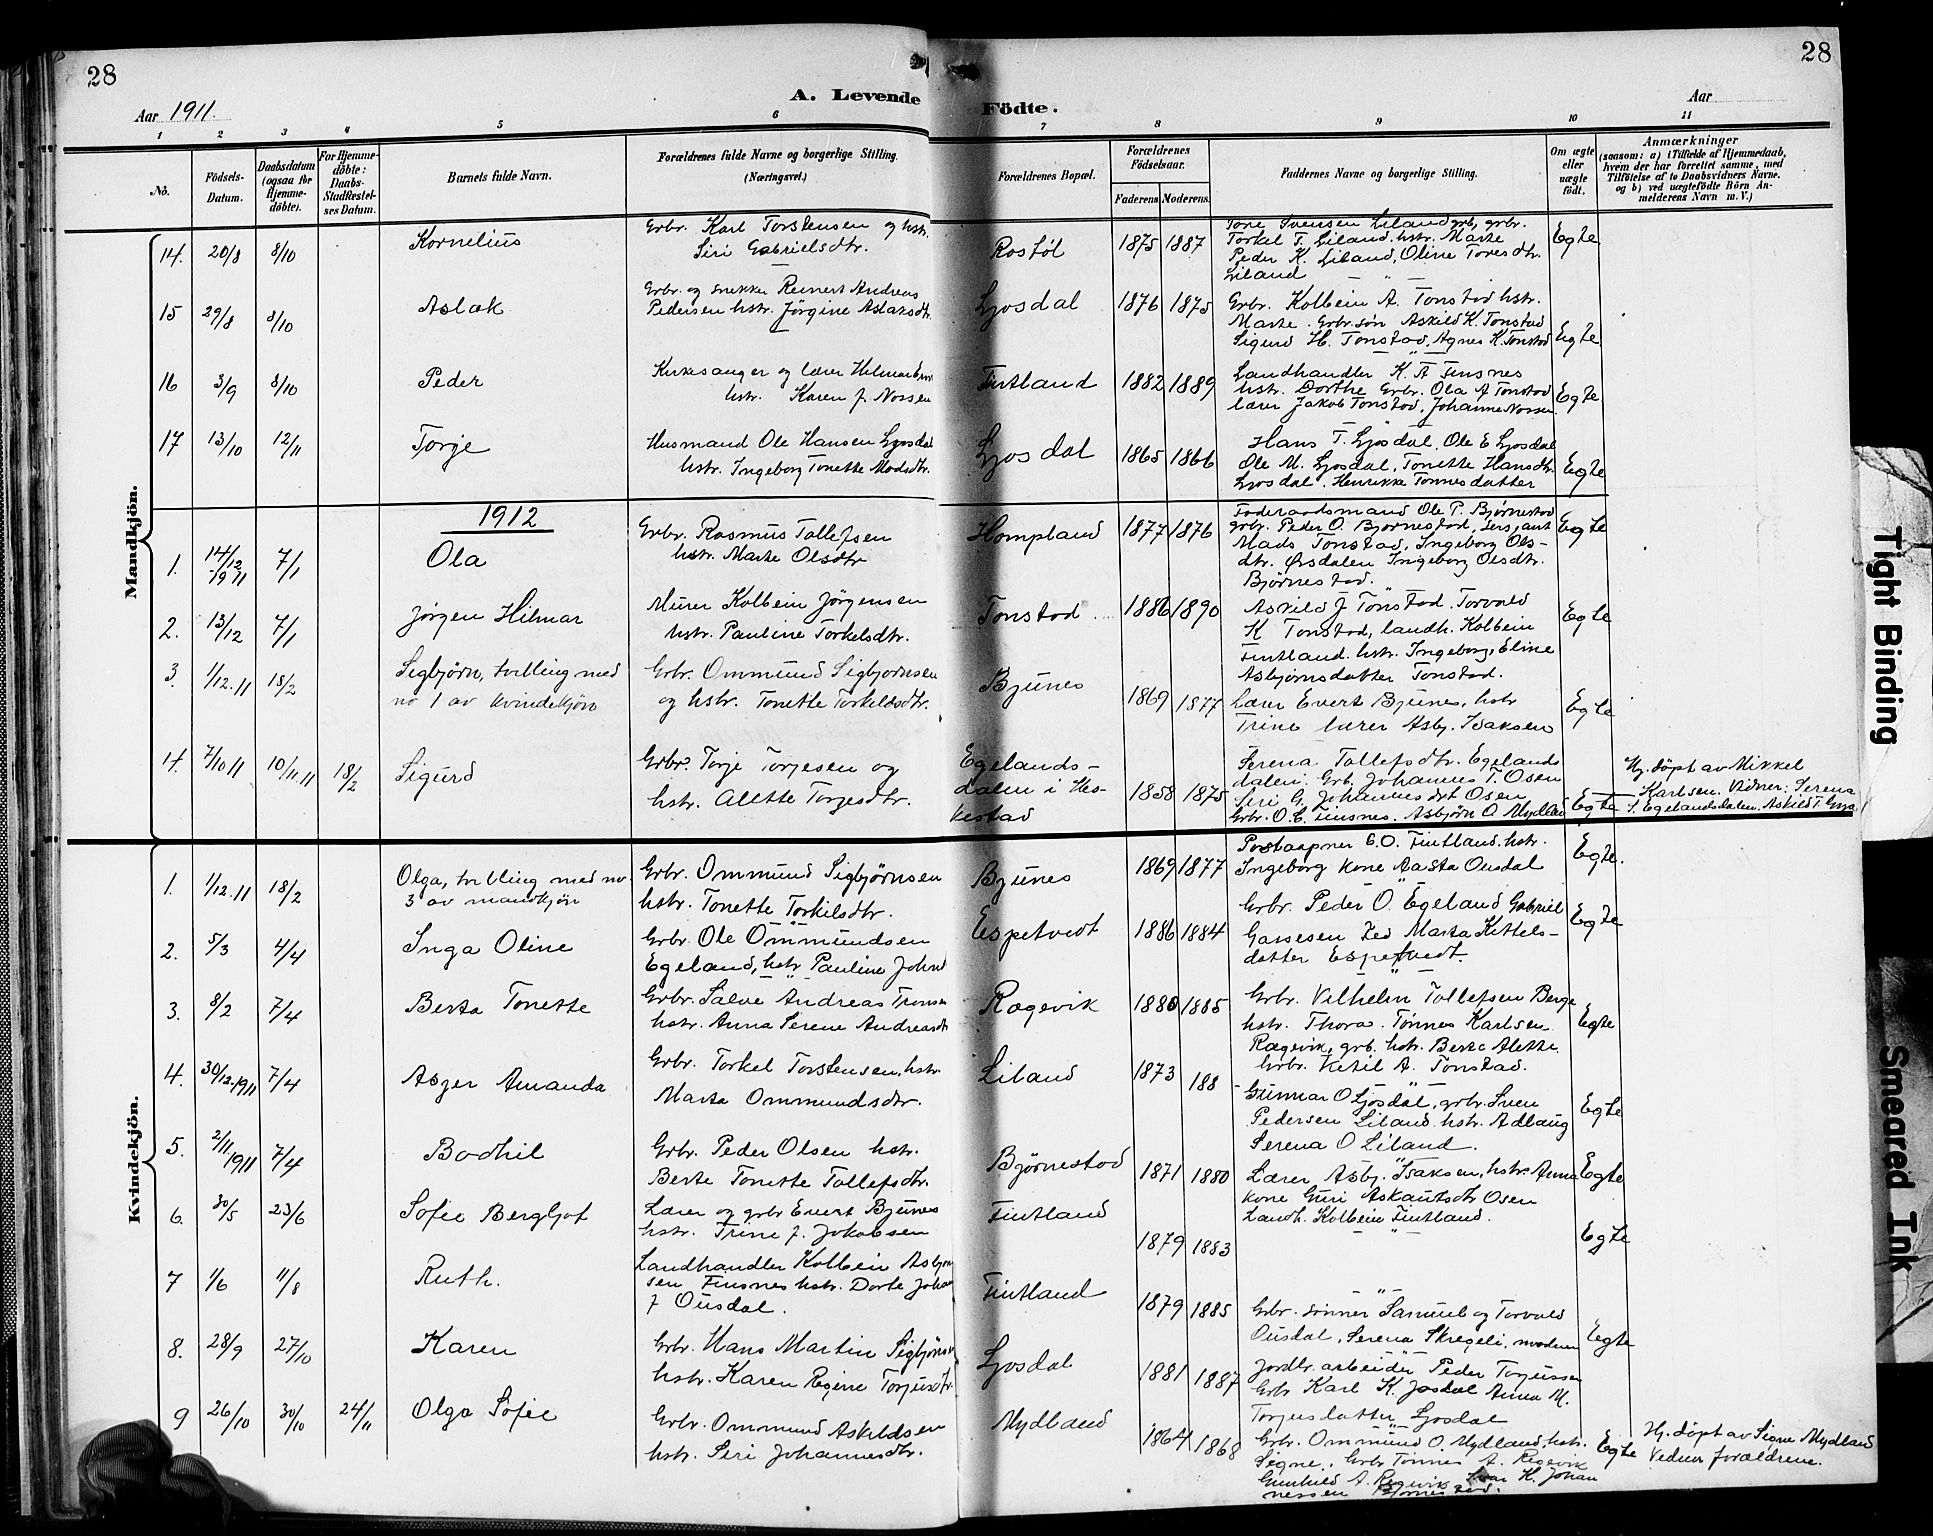 28
28
A. Levende Födte.
Aar 1911.
Aar
1 2 3 4 5 6 7 8 9 10 11
No.
Födsels-Datum.
Daabsdatum (ogsaa för Hjemme-döbte).
For Hjemme-döbte: Daabs-Stadfæstel-ses Datum.
Barnets fulde Navn.
Forældrenes fulde Navne og borgerlige Stilling. (Næringsvei.)
Forældrenes Bopæl.
Forældrenes Födselsaar.
Faderens. Moderens.
Faddernes Navne og borgerlige Stilling.
Om ægte eller uægte födt.
Anmærkninger
(saasom: a) i Tilfælde af Hjemmedaab,
hvem der har forrettet samme, med
Tilföielse af to Daabsvidners Navne.
og b) ved uægtefödte Börn An-
melderens Navn m. V.)
Mandkjön.
14. 20/8 8/10 Kornelius
Grbr. Karl Torstensen og hstr.
Siri Gabrielsdtr.
Rostøl 1875 1887
Tore Svensen Liland grb, grbr.
Torkel T. Liland. hstr. Marte
Peder K. Liland, Oline Toresdtr.
Liland
Egte
15 29/8 8/10 Aslak
Grbr. og snekker Reinert Andreas
Pedersen hstr. Jörgine Aslaksdtr.
Ljosdal 1876 1875
Grbr. Kolbein A. Tonstad hstr.
Marte. Grbr.søn Askild K. Tonstad
Sigurd H. Tonstad, Agnes K. Tonstad
Egte
16 3/9 8/10 Peder
Kirkesanger og lærer Helmar
hstr. Karen J. Nossen
Fintland 1882 1889
Landhandler K. A Finsnes
hstr. Dorthe Grbr. Ola A Tonstad
lærer Jakob Tonstad, Johanne Nossen
Egte
17 13/10 12/11 Torje
Husmand Ole Hansen Ljosdal
hstr. Ingeborg Tonette Madsdtr.
Ljosdal 1865 1866
Hans T. Ljosdal, Ole E Ljosdal
Ole M. Ljosdal, Tonette Hansdtr.
Ljosdal. Henrikke Tonnesdatter
Egte
1912
1. 14/12 1911 7/1 Ola
Grbr. Rasmus Tollefsen
hstr. Marte Olsdtr
Hompland 1877 1876
Føderaadsmand Ole P. Bjørnestad
grbr. Peder O. Bjornestad, Sersjant
Mads Tonstad, Ingeborg Ols-
dtr. Ørsdalen Ingeborg Olsdtr.
Bjørnestad.
Egte
2. 13/12 7/1 Jørgen Hilmar
Murer Kolbein Jörgensen
hstr. Pauline Torkelsdtr.
Tonstad 1886 1890
Askild J Tonstad. Torvald
K Tonstad, landh. Kolbein
Fintland. hstr. Ingeborg, Eline
Asbjørnsdatter Tonstad.
Egte
3. 1/12.11 18/2 Sigbjörn, tvilling med
no 1 av kvindekjön
Grbr. Ommund Sigbjornsen
og hstr. Tonette Torkelsdtr.
Bjunes 1869 1877
Lærer Evert Bjunes, hstr
Trine lærer Asbj. Isaksen
Egte
4. 7/10 11 10/11.11 18/2 Sigurd
Grbr. Torje Torjesen og
hstr. Alette Torgesdtr.
Egelands-
dalen i Hes-
kestad
1858 1875
Serena Tollefsdtr. Egelands
dalen, Grb. Johannes T. Osen
Seri G. Johannesdet Osen
Grbr. O. E. Finsnes. Asbjørn O Mydland
Egte
Hj. døpt av Mikkel
Karlsen. Vidner: Serena
T. Egelandsdalen. Askild T.
Kvindekjön.
1. 1/12.11 18/2 Olga, tvilling med no
3 av mandkjön
Grbr. Ommund Sigbjørnsen
hstr. Tonette Torkilsdtr.
Bjunes 1869 1877
Postaapner E.O. Fintland. hstr.
Ingeborg kone Aasta Ousdal
Egte.
2. 5/3 4/4 Inga Oline
Grbr. Ole Ommundsen
Egeland, hstr Pauline Johnd
Espetvedt 1886 1884
Grbr. Peder O. Egeland Gabriel
Gassesen Ked Marta Kittels-
datter Espetvedt.
Egte
3. 8/2 7/4 Berta Tonette
Grbr. Salve Andreas Tronsen
hstr. Anna Serene Andreasdt
Rægevik 1880 1885
Grbr. Vilhelm Tollefsen Berge
hstr. Thora. Tønnes Karlsen
Rægevik, grb. hstr. Berte Alette.
Grbr. Ketil A. Tonstad.
Egte
4. 30/12.1911 7/4 Asger Amanda
Grbr. Torkel Torstensen, hstr
Marta Ommundsdtr.
Liland 1873 188
Gunnar O Ljosdal, grbr. Sven
Pedersen Liland hstr. Adlaug
Serena O Liland.
Egte
5. 2/11.1911 7/4 Bodhil
Grbr. Peder Olsen hstr.
Berte Tonette Tollefsdtr.
Bjørnestad 1871 1880
Lærer Asbj. Isaksen, hstr. Anna
kone Guri Askautsdtr Osen
Landh. Kolbein Fintland.
Egte
6. 30/5 23/6 Sofie Bergljot
Lærer og grbr Evert Bjunes
hstr. Trine J. Jokobsen
Fintland 1879 1883
Egte
7 1/6 11/8 Ruth.
Landhandler Kolbein Asbjørn
sen Finsnes hstr. Dorte Johan
J Ousdal.
Fintland 1879 1885
Grbr. sønner Samuel og Torvald
Ousdal, Serena Skregeli, moderen
Egte
8. 28/9 27/10 Karen
Grbr. Hans Martin Sigbjörnsen
hstr. Karen Regine Torjusdtr.
Ljosdal 1881 1887
Jordbr. arbeider Peder Torjussen
Grbr Karl K. Josdal Anna M.
Torjusdatter Ljosdal
9 26/10 30/10 24/11 Olga Sofie
Grbr. Ommund Askildsen
hstr. Seri Johannesdtr.
Mydland 1864 1868
Grbr. Ommund O. Mydland, hstr.
Signe, Grbr Tönnes A. Regevik
Gunhild A. Regevik Ivar H. Johan
nessen Bjørnestad.
Egte
Hj. döpt av Signe Mydland
Vidner forældrene.
Tight Binding
Smeared Ink